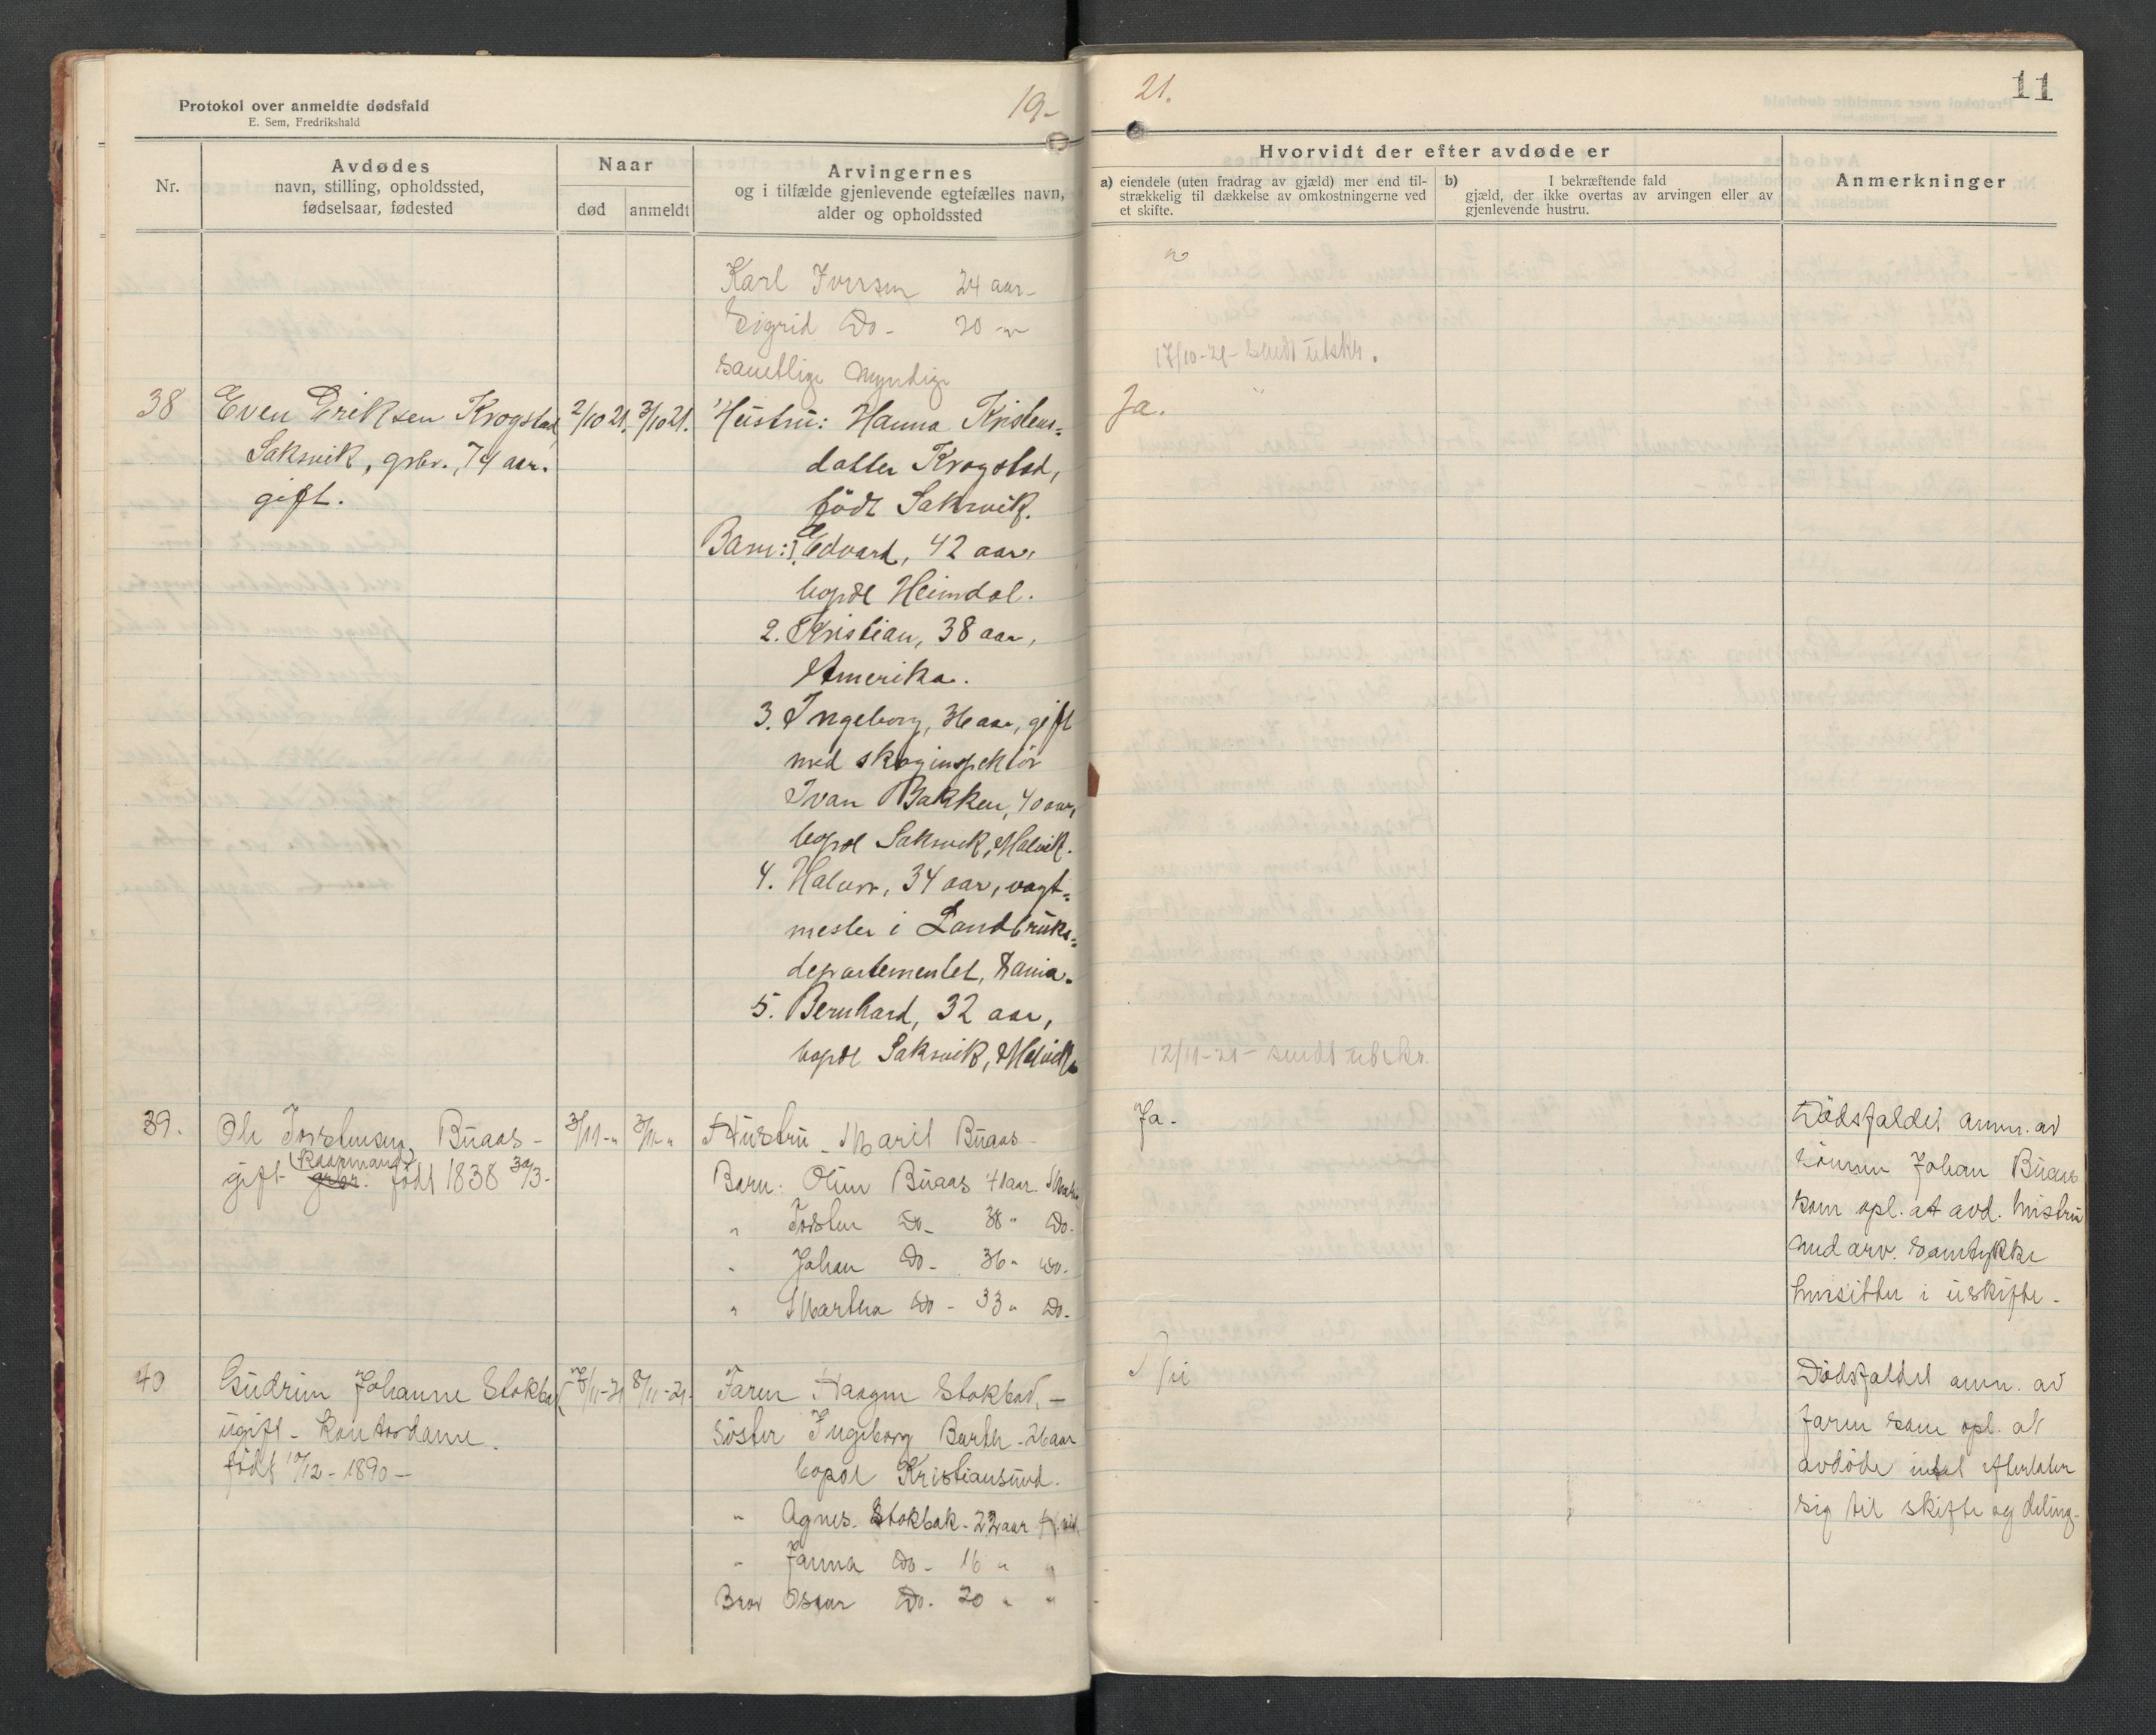 Protokol over anmeldte dødsfald
E. Sem, Fredrikshald
19-
21.
11
Nr.
Avdødes
navn, stilling, opholdssted,
fødselsaar, fødested
Naar
død
anmeldt
Arvingernes
og i tilfælde gjenlevende egtefælles navn,
alder og opholdssted
Hvorvidt der efter avdøde er
a) eiendele (uten fradrag av gjæld) mer end til-
strækkelig til dækkelse av omkostningerne ved
et skifte.
b) I bekræftende fald
gjæld, der ikke overtas av arvingen eller av
gjenlevende hustru.
Anmerkninger
Karl Iversen 24 aar-
Sigrid Do- 20 -"-
samtlige myndige
17/10-21- sendt utskr.
38 Even Eriksen Krogstad 2/10 21. 3/10 21. Hustru: Hanna Kristens= Ja.
Saksvik, grbr., 74 aar. datter Krogstad,
gift. født Saksvik.
Barn: 1. Edvard, 42 aar,
bopæl Heimdal.
2. Kristian, 38 aar,
Amerika.
3. Ingeborg, 36 aar, gift
med skoginspektør
Ivan Bakken, 40 aar,
bopæl Saksvik, Malvik.
4. Halvor, 34 aar, vagt=
mester i Landbruks=
departementet, Kania.
5. Bernhard, 32 aar,
bopæl Saksvik, Malvik.
12/11-21- sendt utskr.
39. Ole Torstensen Buaas- 3/11-" 3/11-" Hustru - Marit Buaas- Ja- Dödsfaldet anm. av
(Kaarmand)
gift- grbr. födt 1838 30/3- Barn: Oline Buaas 41 aar. Malvik sönnen Johan Buaas
" Torsten Do- 38 " Do. som opl. at avd. hustru
" Johan Do- 36 " Do. med arv. samtykke
" Martha Do- 33 " Do- hensitter i uskifte-
40 Gudrun Johanne Stokbak 7/11-21 8/11-21- Faren Haagen Stokbak- Nei Dödsfaldet anm. av
ugift- Kontordame. Söster Ingeborg Barth- 26 aar faren som opl. at
födt 10/12-1890- bopæl Kristiansund. avdöde intet efterlater
" Agnes. Stokbak- 22 aar sig til skifte og deling-
" Janna Do- 16 " "
Bror Oskar Do- 20 " "